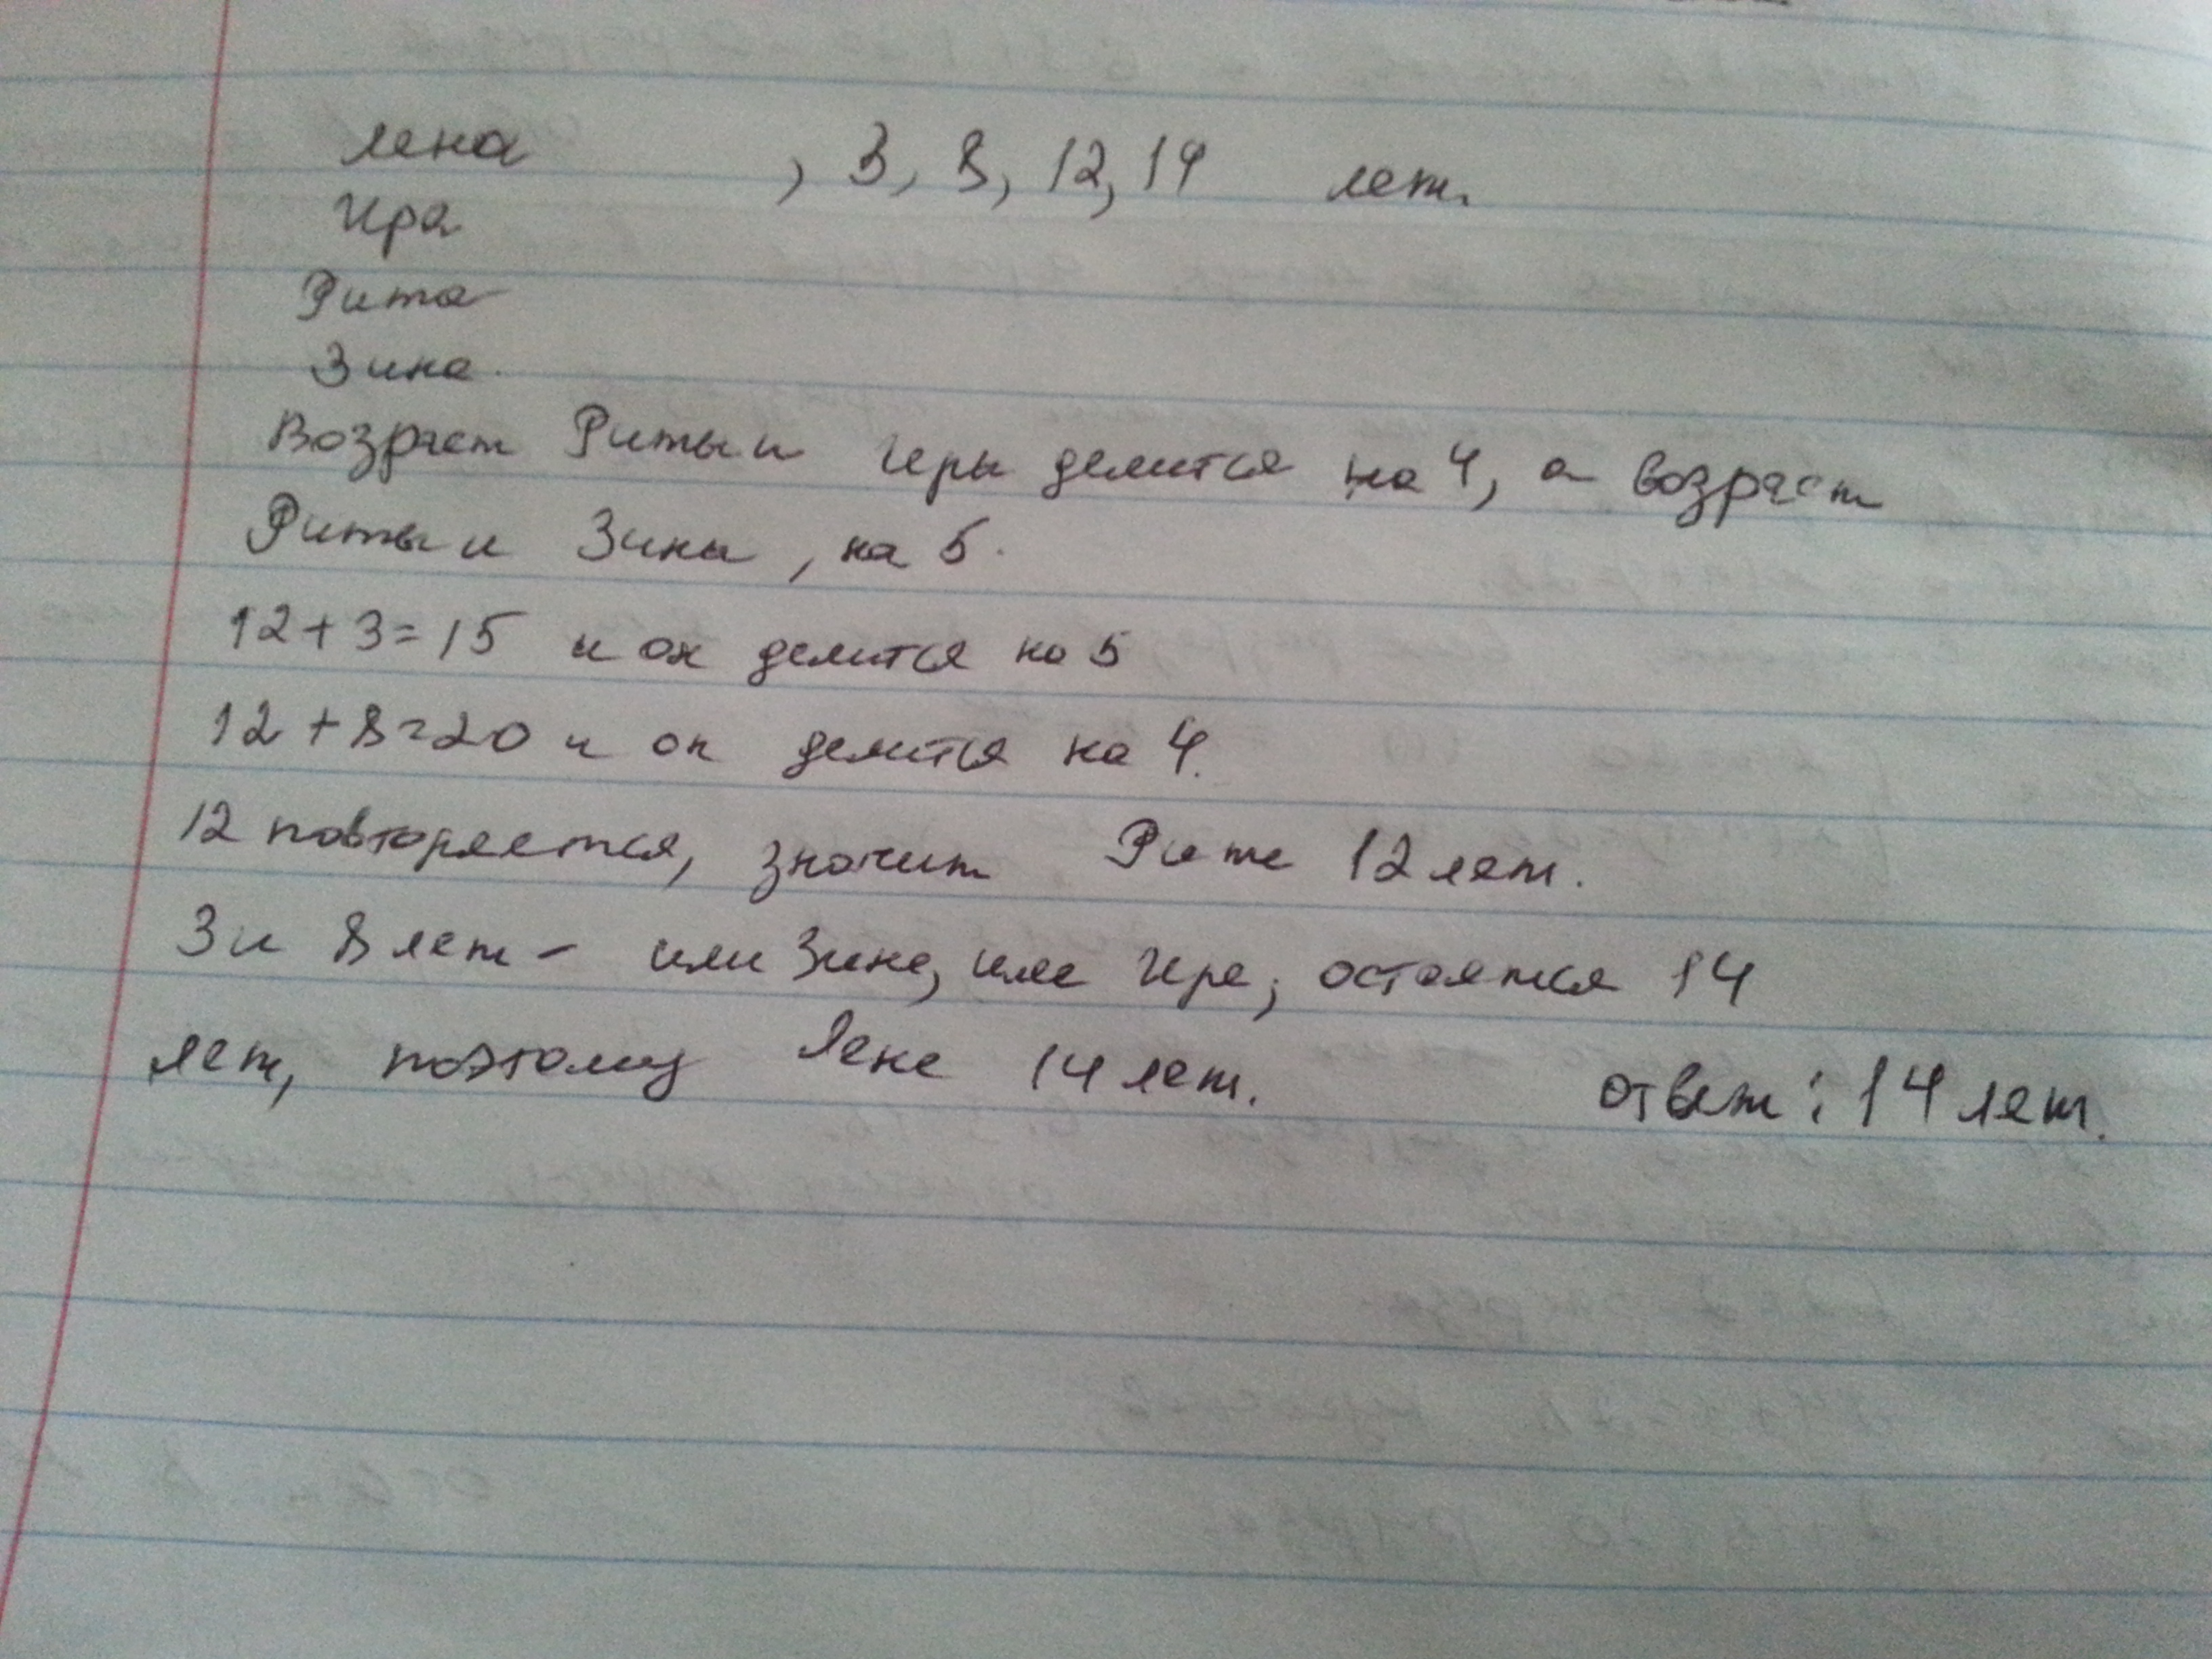 лена , 3, 8, 12, 14 лет.
Ира
Рита
Зина.
Возраст Риты и Иры делится на 4, а возраст
Риты и Зины, на 5.
12+3=15 и он делится на 5
12+8=20 и он делится на 4.
12 повторяется, значит Рите 12 лет.
3 и 8 лет - или Зине, или Ире, остаятся 14
лет, поэтому Лене 14 лет. ответ: 14 лет.